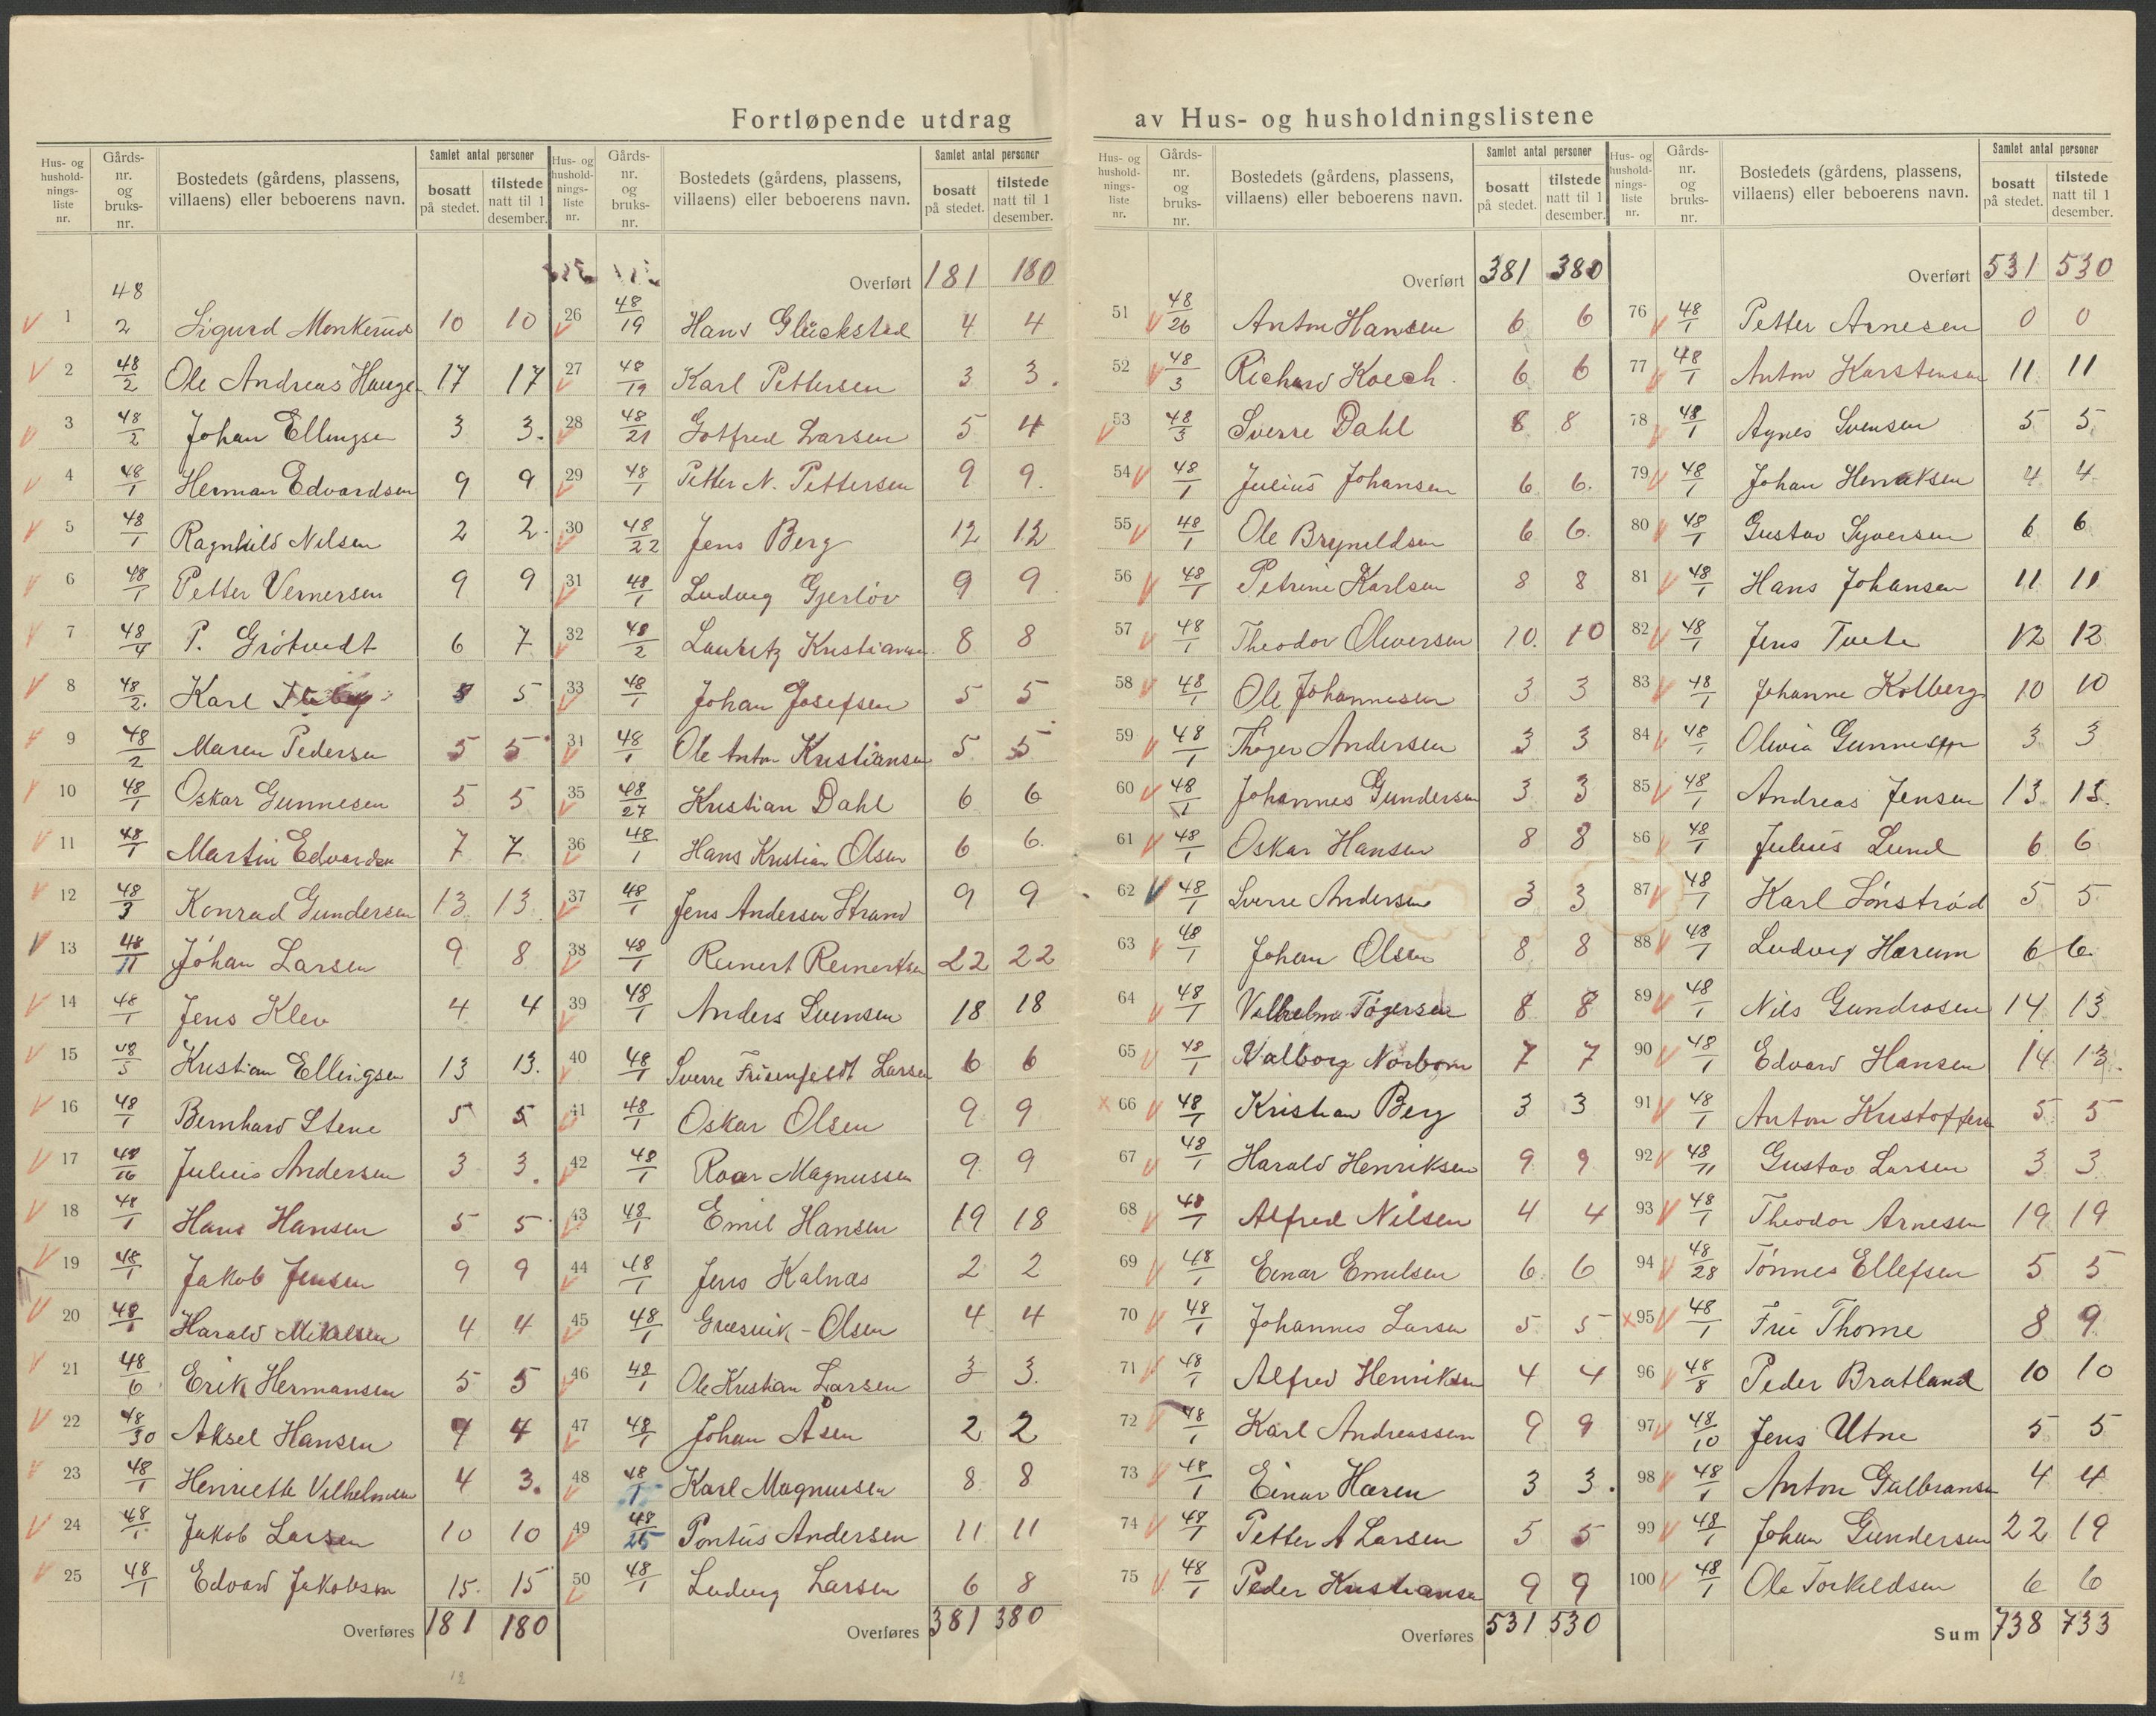 Fortløpende utdrag av Hus- og husholdningslistene
Hus- og husholdnings-liste nr. | Gårds-nr. og bruks-nr. | Bostedets (gårdens, plassens, villaens) eller beboerens navn. | Samlet antal personer | bosatt på stedet. | tilstede natt til 1 desember.
1 48/2 Sigurd Monkerud 10 10
2 48/2 Ole Andreas Hauge 17 17
3 48/2 Johan Ellingsen 3 3.
4 48/1 Herman Edvardsen 9 9
5 48/1 Ragnhild Nilsen 2 2.
6 48/1 Petter Vernersen 9 9
7 48/4 P. Grötvedt 6 7
8 48/2. Karl 5 5
9 48/2 Maren Pedersen 5 5
10 48/1 Oskar Gunnesen 5 5
11 48/1 Martin Edvardsen 7 7
12 48/3 Konrad Gundersen 13 13
13 48/11 Johan Larsen 9 8
14 48/1 Jens Klev 4 4
15 48/5 Kristian Ellingsen 13 13.
16 48/1 Bernhard Stene 5 5
17 48/16 Julius Andersen 3 3.
18 48/1 Hans Hansen 5 5
19 48/1 Jakob Jensen 9 9
20 48/1 Harald Mikalsen 4 4
21 48/6 Erik Hermansen 5 5
22 48/30 Aksel Hansen 4 4
23 48/1 Henriette Vilhelmsen 4 3.
24 48/1 Jakob Larsen 10 10
25 48/1 Edvard Jakobsen 15. 15
Overføres 181 180
12
Hus- og husholdnings-liste nr. | Gårds-nr. og bruks-nr. | Bostedets (gårdens, plassens, villaens) eller beboerens navn. | Samlet antal personer | bosatt på stedet. | tilstede natt til 1 desember.
Overført 181 180
26 48/19 Hans Glückstad 4 4
27 48/19 Karl Pettersen 3 3.
28 48/21 Gotfred Larsen 5 4
29 48/1 Petter N. Pettersen 9 9.
30 48/22 Jens Berg 12 12
31 48/1 Ludvig Gjerløv 9 9
32 48/2 Lauritz Kristiansen 8 8
33 48/1 Johan Josefsen 5 5
34 48/1 Ole Anton Kristiansen 5 5
35 48/27 Kristian Dahl 6 6
36 48/1 Hans Kristian Olsen 6 6.
37 48/1 Jens Andersen Strand 9 9
38 48/1 Reinert Reinertsen 22 22
39 48/1 Anders Svensen 18 18
40 48/1 Sverre Frisenfeldt Larsen 6 6
41 48/1 Oskar Olsen 9 9
42 48/1 Roar Magnussen 9 9
43 48/1 Emil Hansen 19 18
44 48/1 Jens Kalnæs 2 2
45 48/1 Græsvik-Olsen 4 4
46 48/1 Ole Kristian Larsen 3 3.
47 48/1 Johan Åsen 2 2
48 48/1 Karl Magnussen 8 8
49 48/25 Pontus Andersen 11 11
50 48/1 Ludvig Larsen 6 8
Overføres 381 380
Hus- og husholdnings-liste nr. | Gårds-nr. og bruks-nr. | Bostedets (gårdens, plassens, villaens) eller beboerens navn. | Samlet antal personer | bosatt på stedet. | tilstede natt til 1 desember.
Overført 381 380
51 48/26 Anton Hansen 6 6
52 48/3 Richard Koech. 6 6
53 48/3 Sverre Dahl 8 8
54 48/1 Julius Johansen 6 6.
55 48/1 Ole Bryneldsen 6 6.
56 48/1 Petrine Karlsen 8 8
57 48/1 Theodor Oliversen 10. 10
58 48/1 Ole Johannesen 3 3
59 48/1 Thøger Andersen 3 3
60 48/1 Johannes Gundersen 3 3
61 48/1 Oskar Hansen 8 8
62 48/1 Sverre Andersen 3 3
63 48/1 Johan Olsen 8 8
64 48/1 Vilhelm Tøgersen 8 8
65 48/1 Valborg Norbom 7 7
66 48/1 Kristian Berg 3 3
67 48/1 Harald Henriksen 9 9
68 48/1 Alfred Nilsen 4 4
69 48/1 Einar Emilsen 6 6
70 48/1 Johannes Larsen 5 5
71 48/1 Alfred Henriksen 4 4
72 48/1 Karl Andreassen 9 9
73 48/1 Einar Haren 3 3.
74 48/1 Petter A Larsen 5 5
75 48/1 Peder Kristiansen 9 9
Overføres 531 530
Hus- og husholdnings-liste nr. | Gårds-nr. og bruks-nr. | Bostedets (gårdens, plassens, villaens) eller beboerens navn. | Samlet antal personer | bosatt på stedet. | tilstede natt til 1 desember.
Overført 531 530
76 48/1 Petter Arnesen 0 0
77 48/1 Anton Karstensen 11 11
78 48/1 Agnes Svensen 5 5
79 48/1 Johan Henriksen 4 4
80 48/1 Gustav Syversen 6 6
81 48/1 Hans Johansen 11 11
82 48/1 Jens Tvete 12 12
83 48/1 Johanne Kolberg 10 10
84 48/1 Olivia Gunnesen 3 3
85 48/1 Andreas Jensen 13 13.
86 48/1 Julius Lund 6 6
87 48/1 Karl Lønstrød 5 5
88 48/1 Ludvig Harum 6 6
89 48/1 Nils Gundrosen 14 13
90 48/1 Edvard Hansen 14 13.
91 48/1 Anton Kristoffers 5 5
92 48/11 Gustav Larsen 3 3
93 48/1 Theodor Arnesen 19 19
94 48/28 Tönnes Ellefsen 5 5
95 48/1 Frü Thorne 8 9
96 48/8 Peder Bratland 10 10
97 48/10 Jens Utne 5 5
98 48/1 Anton Gulbransen 4 4
99 48/1 Johan Gundersen 22 19
100 48/1 Ole Torkeldsen 6 6
Sum 738 733